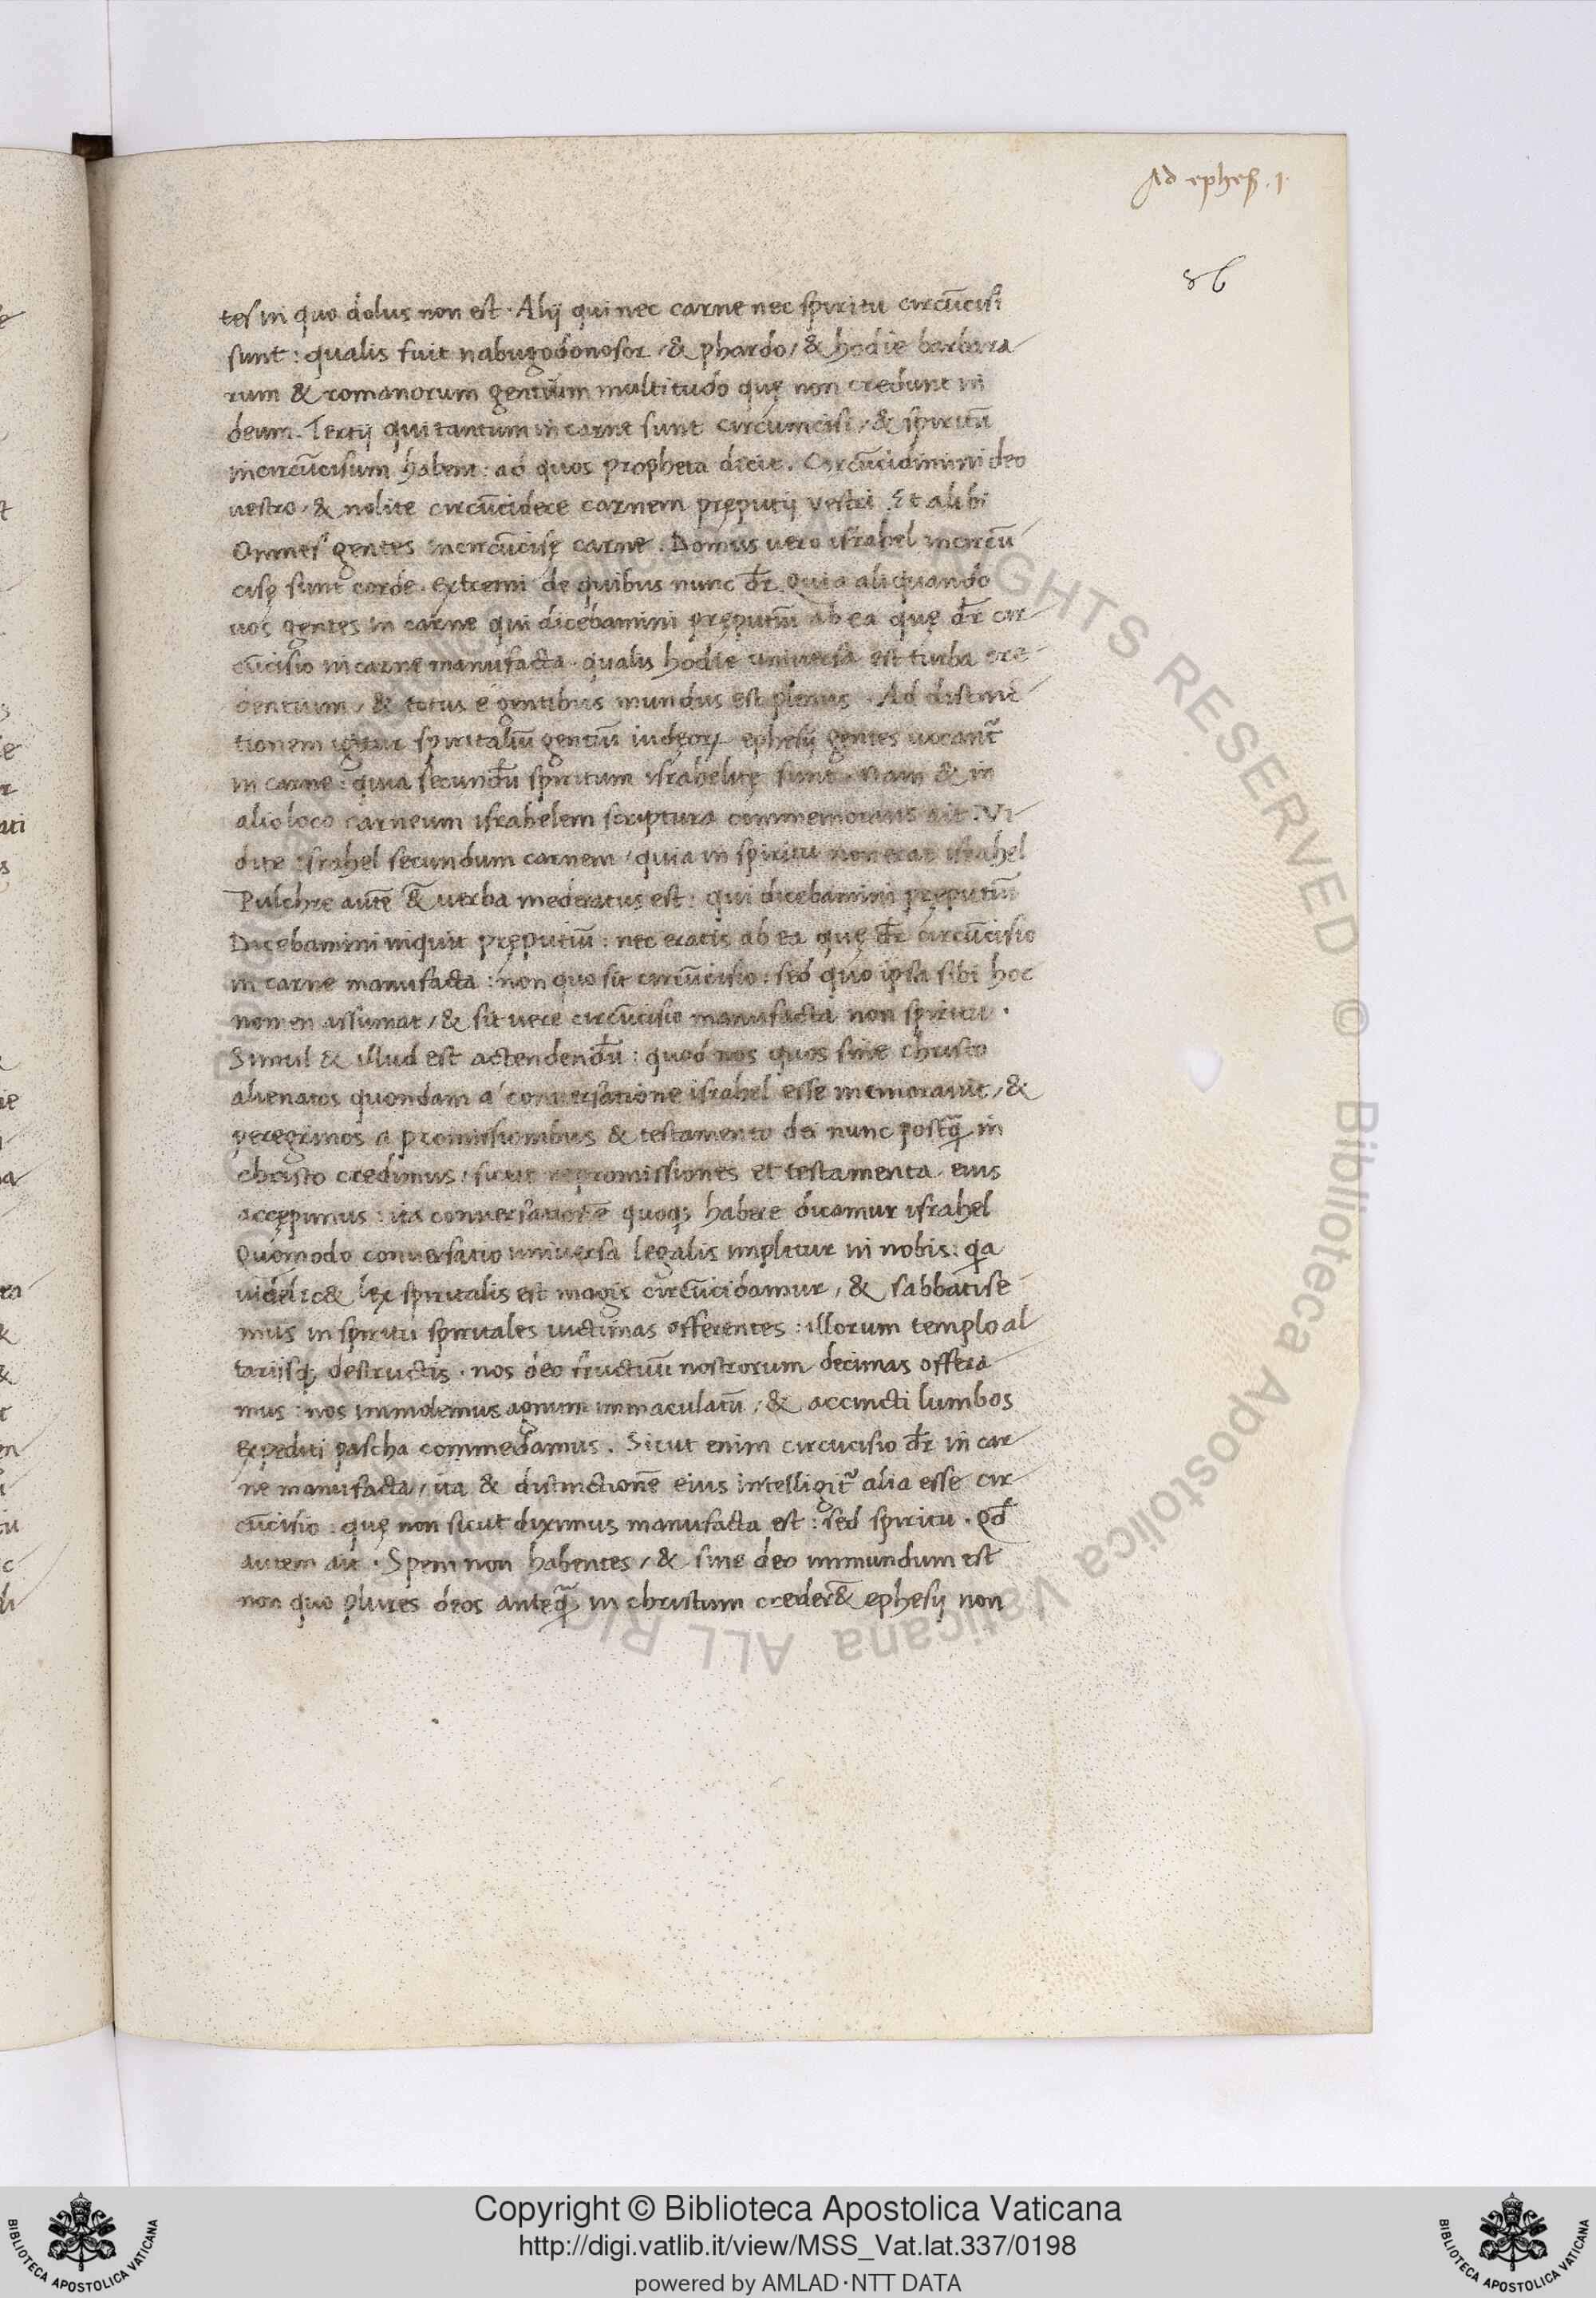 Ad ephes. 1.
86
tes in quo dolus non est. Alij qui nec carne nec spiritu circūcisi
sunt: qualis fuit nabugodonosor / & phardo / & hodie barbara
rum & romanorum gentium multitudo quę non credunt in
deum. Tertij qui tantum in carne sunt circumcisi / & spiritū
incircūcisum habent: ad quos propheta dicit. Circūcidimini deo
uestro / & nolite circūcidere carnem pręputij vestri. Et alibi
Omnes gentes incircūcisę carne. Domus uero israhel incircū
cisę sunt corde. Extremi de quibus nunc dr̄. Quia aliquando
uos gentes in carne qui dicebamini pręputiū ab ea quę dr̄ cir
cūcisio in carne manufacta. qualis hodie uniuersa est turba cre
dentium / & totus é gentibus mundus est plenus. Ad distinc
tionem igitur spiritaliū gentiū iudęoꝝ ephesij gentes uocant̄
in carne: quia secundū spiritum israhelitę sunt. Nam & in
alio loco carneum israhelem scriptura commemorans ait. Vi
dite israhel secundum carnem / quia in spiritu non erat israhel
Pulchre autē & uerba moderatus est: qui dicebamini pręputiū
Dicebamini inquit pręputiū: nec eratis ab ea quę dr̄ circūcisio
in carne manufacta: non quo sit circūcisio: sed quo ipsa sibi hoc
nomen assumat / & sit uere circūcisio manufacta non spiritu.
Simul & illud est actendendū: quod nos quos sine christo
alienatos quondam á conuersatione israhel esse memorauit / &
peregrinos a promissionibus & testamento dei nunc postq̄ in
christo credimus / sicut repromissiones et testamenta eius
accępimus: ita conuersationē quoqꝫ habere dicamur israhel
Quomodo conuersatio uniuersa legalis implitur in nobis: qa
uidelic& lex spiritalis est magis circūcidamur / & sabbatise
mus in spiritu spiritales uictimas offerentes: illorum templo al
tariisqꝫ destructis. nos deo fructuū nostrorum decimas offera
mus: nos immolemus agnum immaculatū / & accincti lumbos
expediti pascha commedamus. Sicut enim circucisio dr̄ in car
ne manufacta / ita & distinctionē eius intelligit̄ alia esse cir
cūcisio: quę non sicut diximus manufacta est: sed spiritu. Qd̄
autem ait. Spem non habentes / & sine deo in mundum est
non quo plures deos anteq̄ in christum creder& ephesij non
Copyright © Biblioteca Apostolica Vaticana
http://digi.vatlib.it/view/MSS_Vat.lat.337/0198
powered by AMLAD·NTT DATA